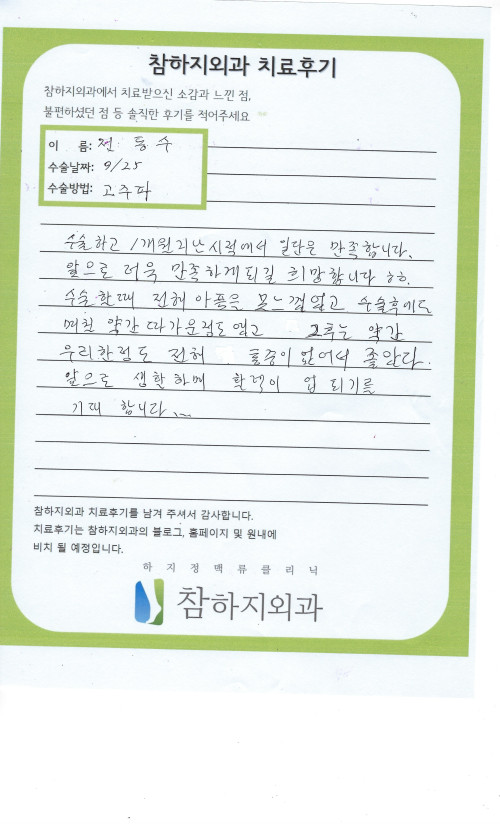 참하지외과 치료후기
참하지외과에서 치료받으신 소감과 느낀 점,
불편하셨던 점 등 솔직한 후기를 적어주세요
이 름: 전 동 수
수술날짜: 9/25
수술방법: 고주파
수술하고 1개월 지난 시점에서 일단은 만족합니다.
앞으로 더욱 만족하게되길 희망합니다 ㅎㅎ.
수술할때 전혀 아픔은 못느꼈었고 수술후에도
며칠 약간 따가운정도였고 그후는 약간
우리한정도 전혀 통증이 없어서 좋았다.
앞으로 생활하며 활력이 업 되기를
기대 합니다
참하지외과 치료후기를 남겨 주셔서 감사합니다.
치료후기는 참하지외과의 블로그, 홈페이지 및 원내에
비치 될 예정입니다.
하지정맥류클리닉
참하지외과